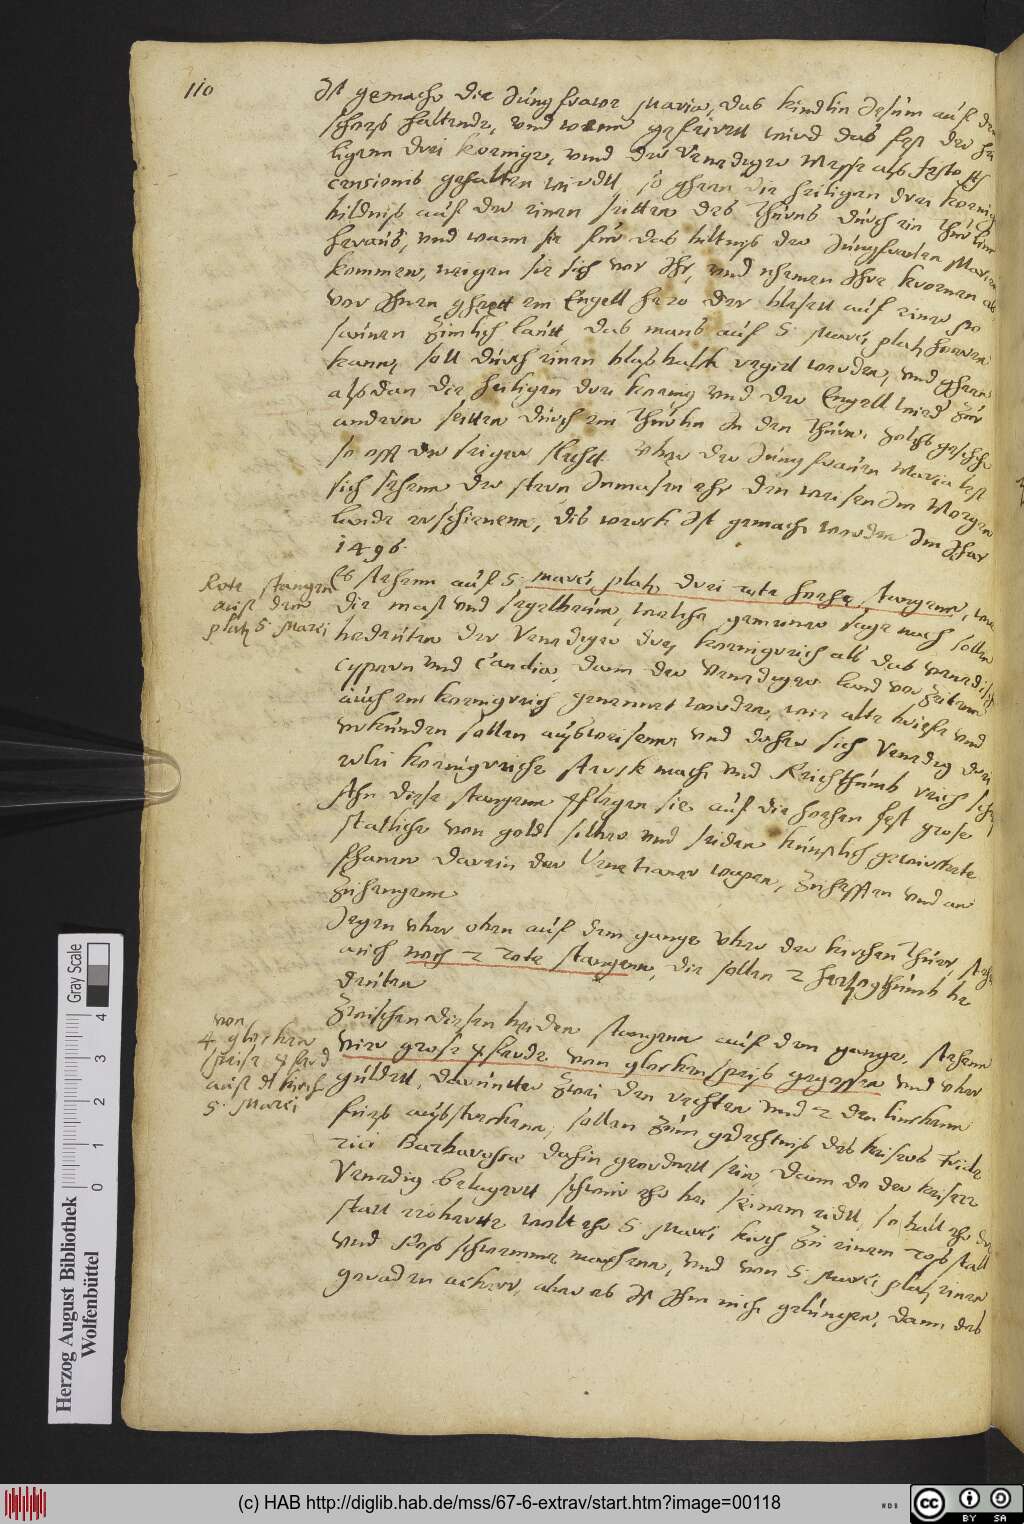 110
Ist gemacht die Jungfrawe Maria, das kindlin Jesum auf dem
schoeß haltende, und wenn gefeiert wird das fest der hei
ligenn drei koenige, unnd der Venediger Messe als festo As
censionis gehalten wirdt, so ghenn die heiligen drei koenig
bildnis auf der einen seitten des thurns durch ein thürlin
heraus, und wann sie für das biltnis der Jungfrawen Marien
kommen, neigen sie sich vor Ihr, und nhemen Ihre kronen ab
vor Ihnen ghett ein Engell hero der bleset auf einer po
saunen zimlich lautt, das mans auf S. Marci platz hoeren
kann, soll durch einen blaßbalch regirt werden, und ghenn
alsdan die heiligen drei koenig und der Engell wied zur
andern seitten durch ein thürlin In den thurn, solchs geschicht
so offt der seiger slecht. Uber der Jungfrauen Maria lest
sich sehenn der stern Inmasen ehr den weisen Im Morgen
lande erschienenn, dis werck Ist gemacht worden Im Jhar
1496.
Rote stangen
auf dem
platz S Marci
Es stehenn auf S. Marci platz drei rote hoehe stangenn, wie
die mast und segelbeum, welche gemeiner sage nach sollen
bedeuten der Venediger drej koenigreich als das venedische
Cypern und Candia, dann der Venediger land vor zeitenn
auch ein koenigreich genennet worden, wie alte briefe und
urkunden sollen ausweisenn und daher sich Venedig drei
erlei koenigreiche starck macht und Reichthumb reich sche
Ahn diese stangenn pflegen sie auf die hoehen fest grose
statliche von goldt silber und seiden künstlich gewirckete
fhanen darein der Venetianer wapen, zuhefften und an
zuhengenn
Jegen uber oben auf dem gange uber der kirchen thüer, stehn
auch noch 2 rote stangenn, die sollen 2 hertzogthumb be
deuten
von
4 glocken
speise pferd
auf d kirch
S. Marci
Zwischen diesen beiden stangenn auf dem gange, stehenn
vier grose pferde von glockenspeis gegossen und uber
guldett, darunter zwei den rechten und 2 den linckenn
fues ausstreckenn, sollen zum gedechtnis des keisers Fride
rici Barbarossae dahin geordnett sein, dann do der keiser
Venedig belagertt schwur ehr bei seinem eidt, so balt ehr die
statt eroberte wolt ehr S Marci kirch zu einem ros stall
und Ros schwemme machenn, und von S. Marci platz einen
geraden acker, aber es Ist Ihm nicht gelungen, dann des
Herzog August Bibliothek
Wolfenbüttel
Gray Scale
0 1 2 3 4
(c) HAB http://diglib.hab.de/mss/67-6-extrav/start.htm?image=00118
WDB
cc BY SA